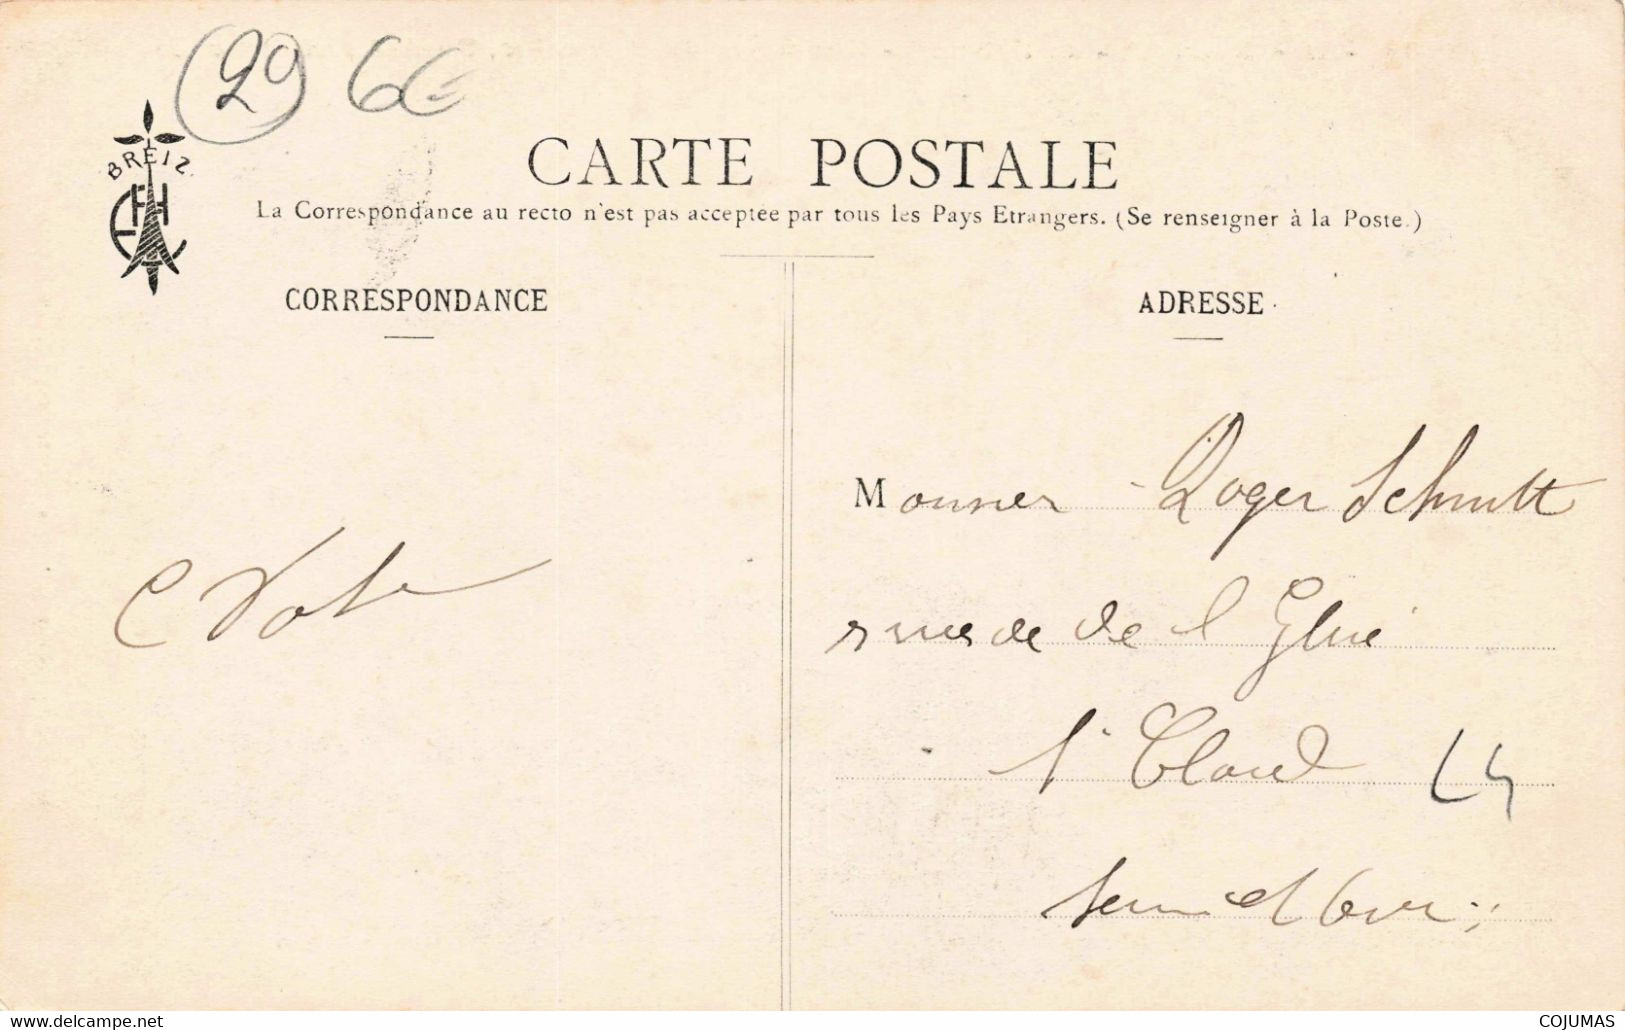 29 6€
BREIZ
CARTE POSTALE
La Correspondance au recto n'est pas acceptée par tous les Pays Etrangers. (Se renseigner à la Poste.)
CORRESPONDANCE
ADRESSE
Monsieur Roger Schmitt
de l'Eglise
St Cloud
Seine et Oise
www.delcampe.net
COJUMAS